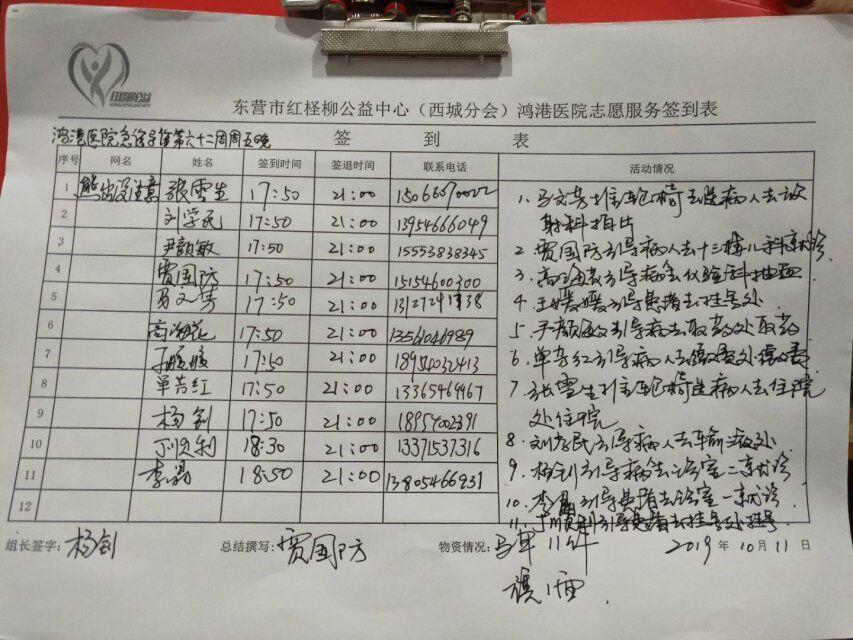 红柽柳公益
东营市红柽柳公益中心（西城分会）鸿港医院志愿服务签到表
鸿港医院急诊导诊第六十二周周五晚 签 到 表
序号 网名 姓名 签到时间 签退时间 联系电话 活动情况
1 熊出没注意 张雪生 17:50 21:00
2 刘学民 17:50 21:00 13954666049
3 尹颜敏 17:50 21:00 15553838345
4 贾国防 17:50 21:00 15154600300
5 马文芳 17:50 21:00
6 高海花 17:50 21:00
7 王媛媛 17:50 21:00 18954032413
8 单吉红 17:50 21:00 13365469967
9 杨剑 17:50 21:00 18954002391
10 丁顺利 18:30 21:00 13371537316
11 李勇 18:50 21:00 13805466931
12
1、马文芳推轮椅送病人去放
射科拍片
2、贾国防引导病人去十三楼儿科就诊
3、高海花引导病人去化验科抽血
4、王媛媛引导患者去挂号处
5、尹颜敏引导病人去取药处取药
6、单吉红引导病人去缴费处缴费
7、张雪生推轮椅送病人去住院
处住院
8、刘学民引导病人去输液处
9、杨剑引导病人去诊室二就诊
10、李勇引导患者去诊室一就诊
11、丁顺利引导患者去挂号处挂号
组长签字：杨剑 总结撰写：贾国防 物资情况：马甲11件 2019年10月11日